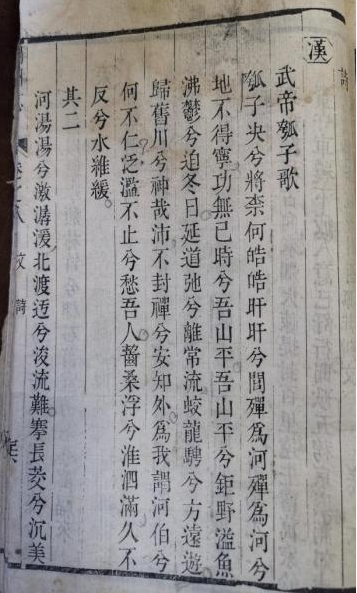 漢
武帝瓠子歌
瓠子决兮將柰何皓皓旰旰兮閭殫爲河殫爲河兮
地不得寧功無已時兮吾山平吾山平兮鉅野溢魚
沸鬱兮迫冬日延道弛兮離常流蛟龍騁兮方遠遊
歸舊川兮神哉沛不封禪兮安知外爲我謂河伯兮
何不仁泛濫不止兮愁吾人齧桑浮兮淮泗滿久不
反兮水維緩
其二
河湯湯兮激潺湲北渡迂兮浚流難搴長茭兮沉美
文 詩